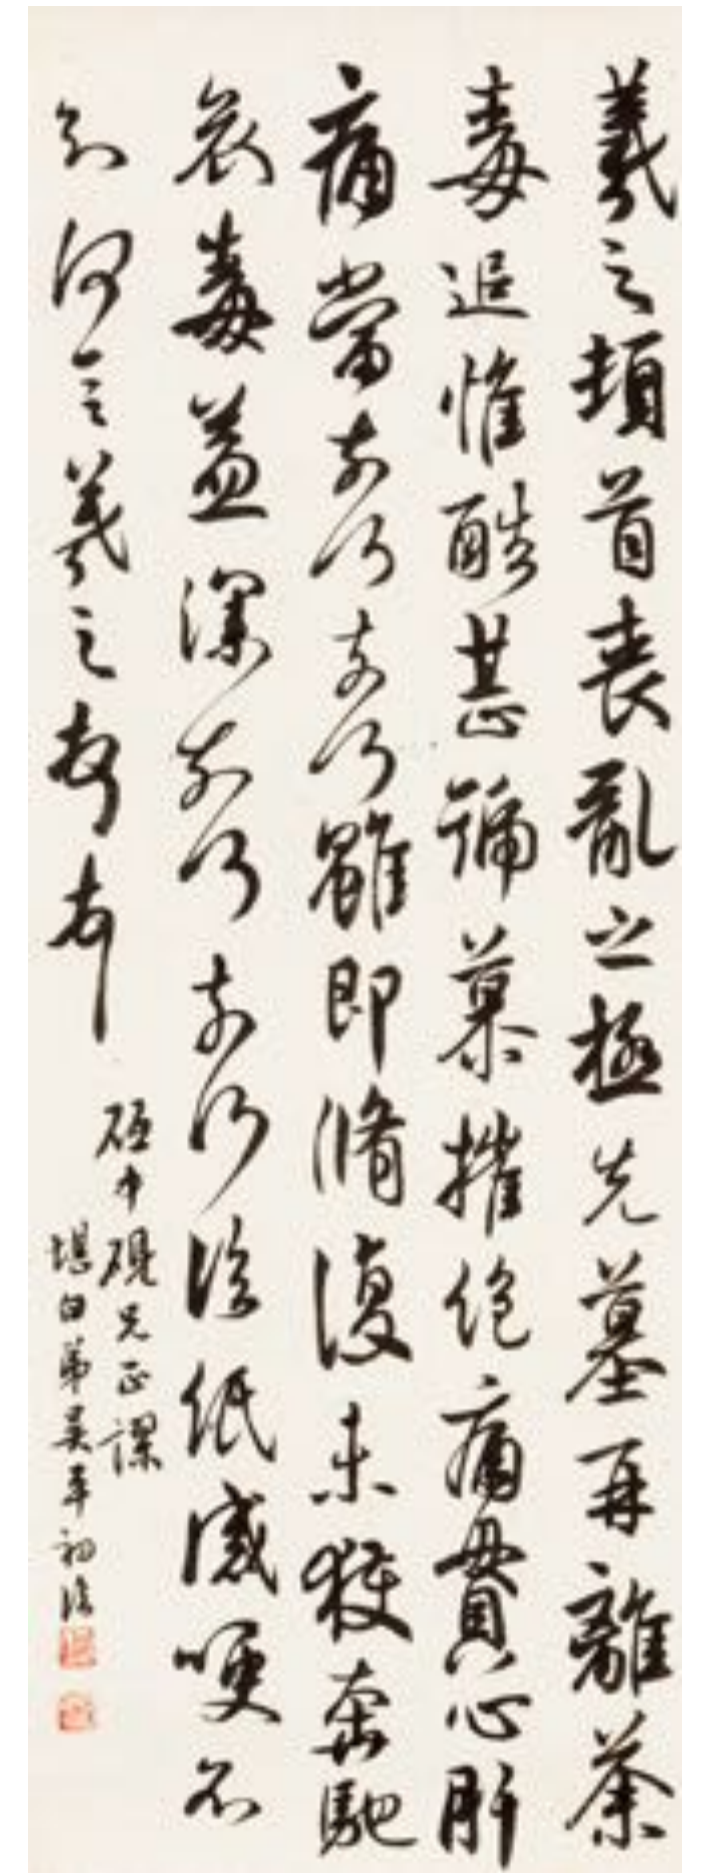 羲之頓首喪亂之極先墓再離荼
毒追惟酷甚號慕摧絕痛貫心肝
痛當奈何奈何雖即脩復未獲奔馳
哀毒益深奈何奈何臨紙感哽不
知何言羲之頓首頓首
中硯兄正謬
堪白弟吳平初臨